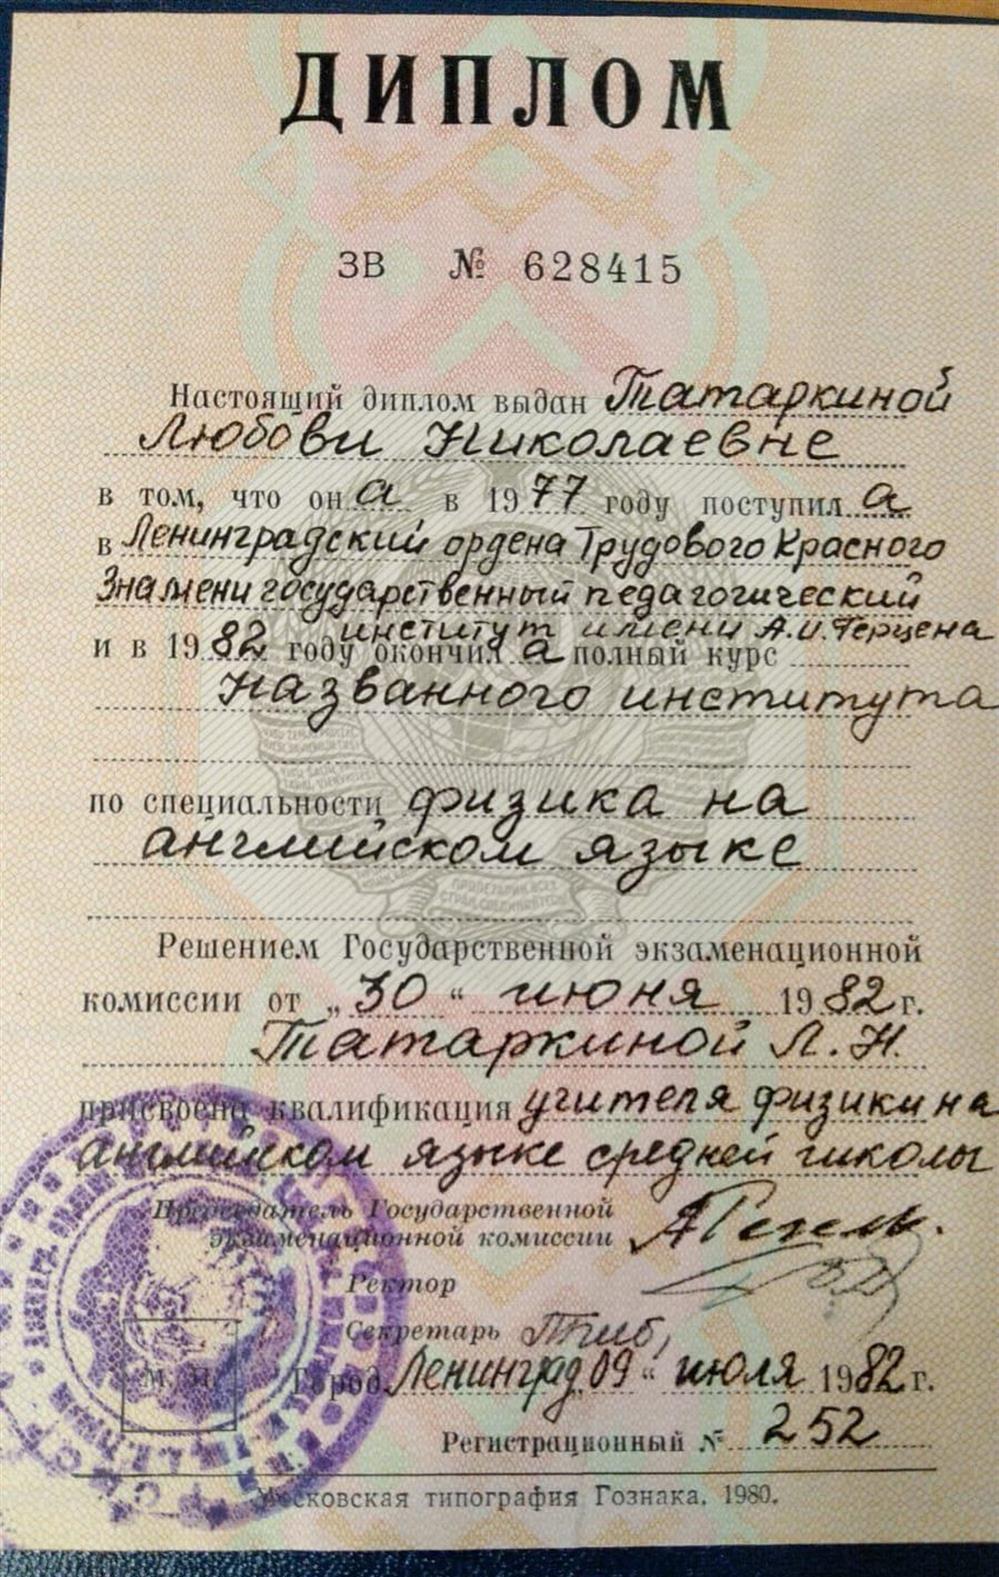 ДИПЛОМ
ЗВ № 628415
Настоящий диплом выдан Татаркиной
Любови Николаевне
в том, что он а в 1977 году поступил а
в Ленинградский ордена Трудового Красного
Знамени государственный педагогический
институт имени А.И. Герцена
и в 1982 году окончил а полный курс
названного института
по специальности физика на
английском языке
Решением Государственной экзаменационной
комиссии от „30“ июня 1982 г.
Татаркиной Л. Н.
присвоена квалификация учителя физики на
английском языке средней школы
Председатель Государственной
экзаменационной комиссии
Ректор
Секретарь
М. П. Город Ленинград „09“ июля 1982 г.
Регистрационный № 252
Московская типография Гознака. 1980.